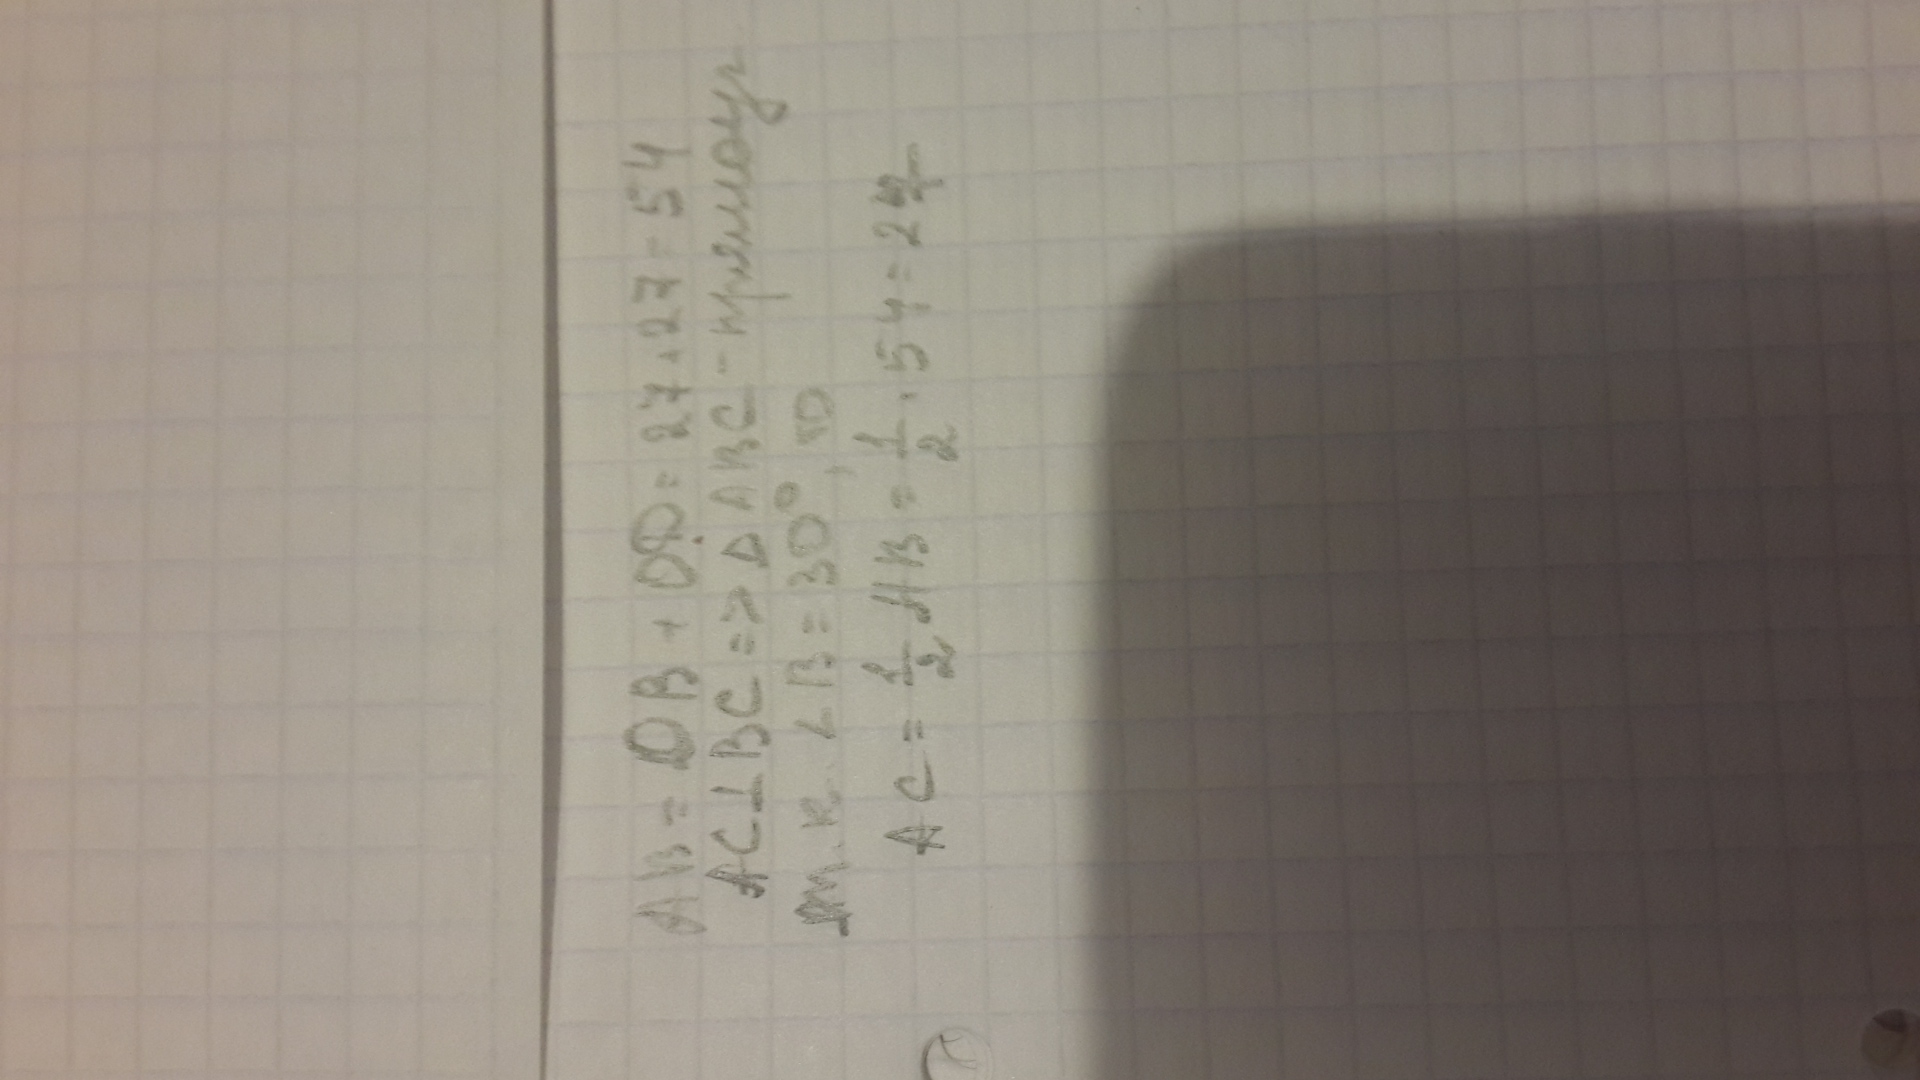 AB = OB + OD = 27 + 27 = 54
AC⊥BC => Δ ABC - прямоуг
т.к. ∠B = 30°, то
AC = 1/2 AB = 1/2 · 54 = 27